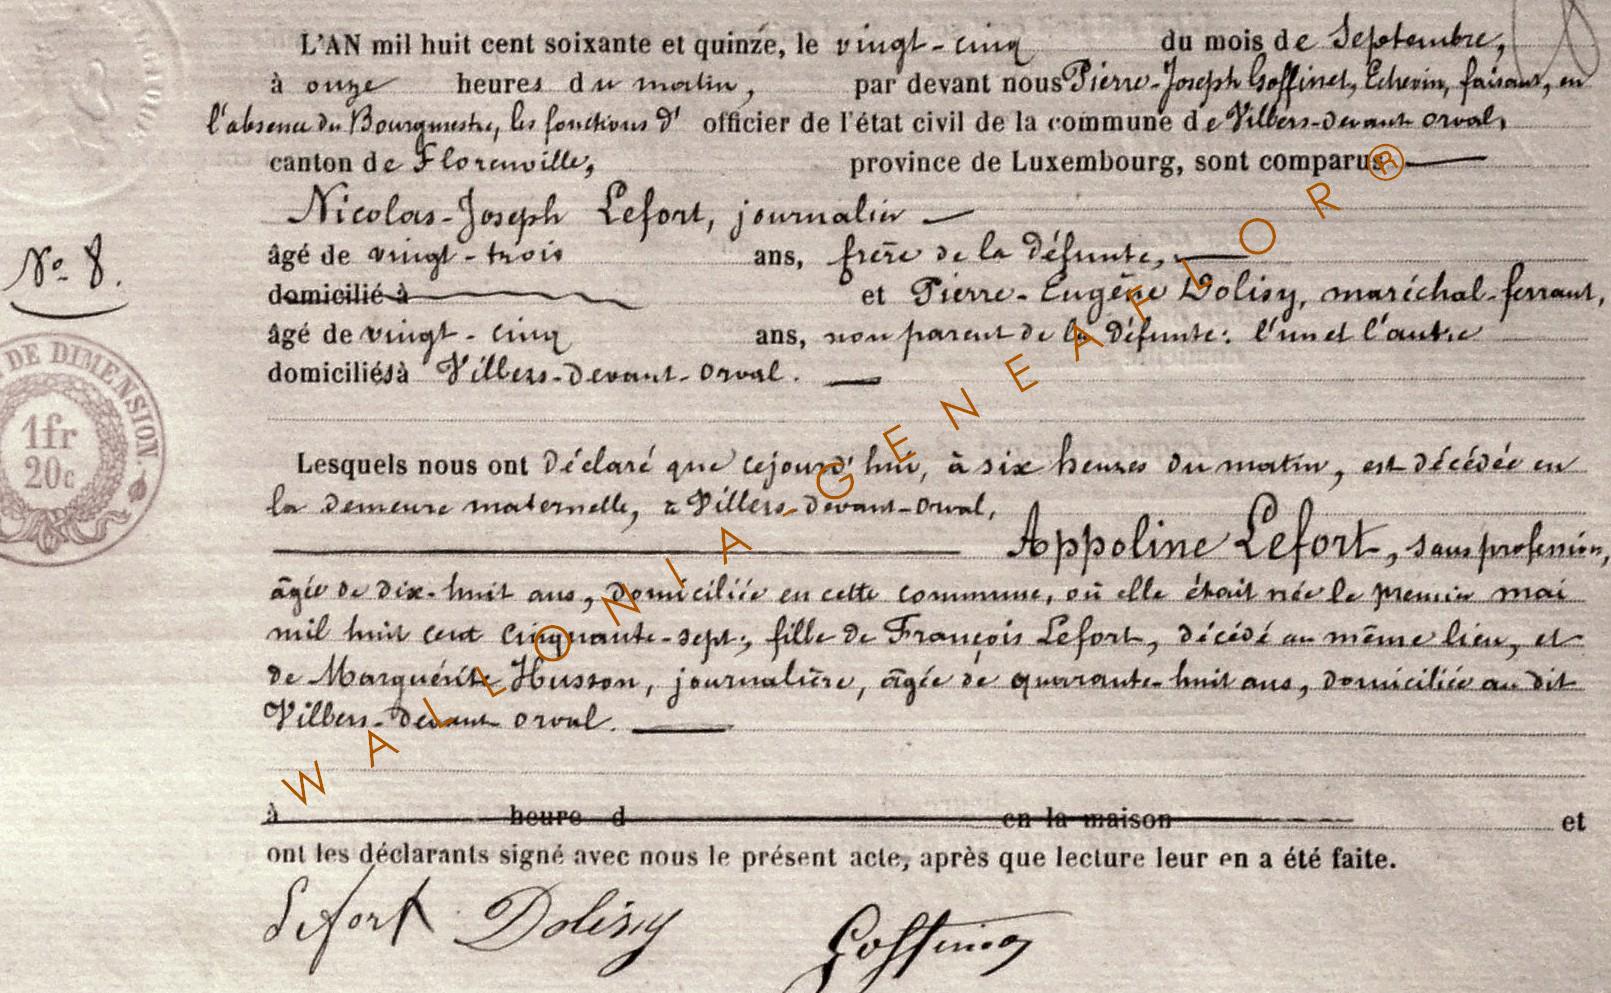 L'AN mil huit cent soixante et quinze, le vingt-cinq du mois de Septembre,
à onze heures du matin, par devant nous Pierre-Joseph Goffinet, Echevin, faisant, en
l'absence du Bourgmestre, les fonctions d' officier de l'état civil de la commune de Villers-devant-orval,
canton de Florenville, province de Luxembourg, sont comparus
Nicolas-Joseph Lefort, journalier
âgé de vingt-trois ans, frère de la défunte,
domicilié à et Pierre-Eugène Dolisy, maréchal-ferrant,
âgé de vingt-cinq ans, non parent de la défunte: l'un et l'autre
domiciliés à Villers-devant-orval.
N° 8.
DE DIMENSION.
1fr
20c
Lesquels nous ont déclaré que cejourd'hui, à six heures du matin, est décédée en
la demeure maternelle, à Villers-devant-orval,
Appoline Lefort, sans profession,
âgée de dix-huit ans, domiciliée en cette commune, où elle était née le premier mai
mil huit cent cinquante-sept; fille de François Lefort, décédé au même lieu, et
de Marguérite Husson, journalière, âgée de quarante-huit ans, domiciliée au dit
Villers-devant orval.
à heure d en la maison et
ont les déclarants signé avec nous le présent acte, après que lecture leur en a été faite.
Lefort Dolisy Goffinet
WALLONIA-GENEAFLOR®